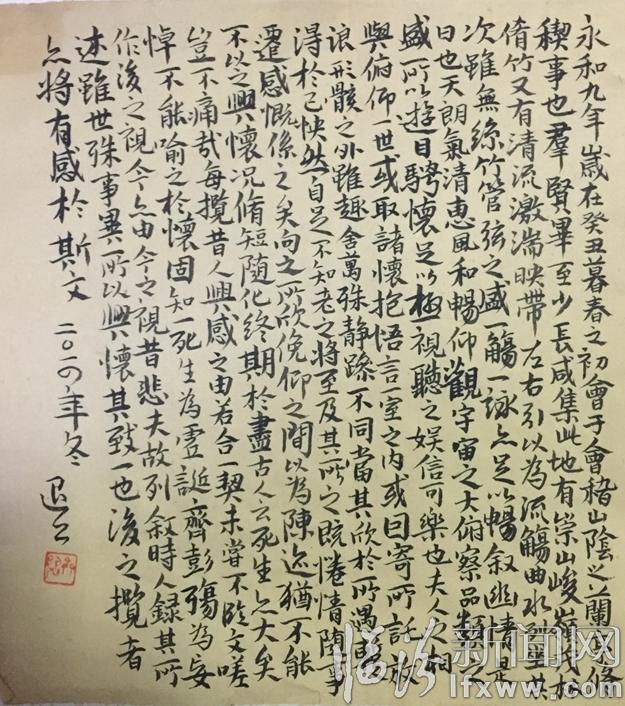 永和九年歲在癸丑暮春之初會于會稽山陰之蘭亭脩
稧事也羣賢畢至少長咸集此地有崇山峻嶺茂林
脩竹又有清流激湍映帶左右引以為流觴曲水列坐其
次雖無絲竹管弦之盛一觴一詠亦足以暢叙幽情是
日也天朗氣清惠風和暢仰觀宇宙之大俯察品類之
盛所以遊目騁懷足以極視聽之娱信可樂也夫人之相
與俯仰一世或取諸懷抱悟言一室之内或因寄所託放
浪形骸之外雖趣舍萬殊静躁不同當其欣於所遇暫
得於己怏然自足不知老之將至及其所之既惓情随事
遷感慨係之矣向之所欣俛仰之間以為陳迹猶不能
不以之興懷况脩短随化終期於盡古人云死生亦大矣
豈不痛哉每攬昔人興感之由若合一契未嘗不臨文嗟
悼不能喻之於懷固知一死生為虛誕齊彭殤為妄
作後之視今亦由今之視昔悲夫故列叙時人録其所
述雖世殊事異所以興懷其致一也後之攬者
亦將有感於斯文 二〇一四年冬 退之
临汾新闻网
lfxww.com